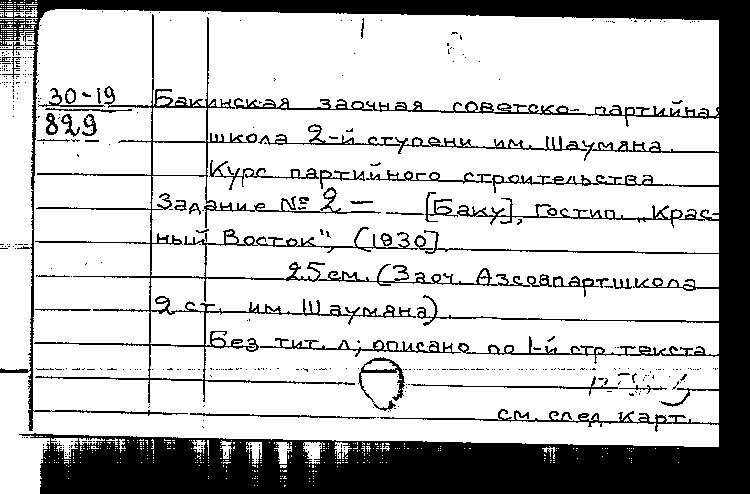 30-19 Бакинская заочная советско-партийная
829 школа 2-й ступени им. Шаумяна.
Курс партийного строительства
Задание № 2 — [Баку], Гостип. „Крас-
ный Восток", (1930].
25 см. (Заоч. Азсовпартшкола
2 ст. им. Шаумяна).
Без тит. л; описано по 1-й стр. текста
см. след карт.